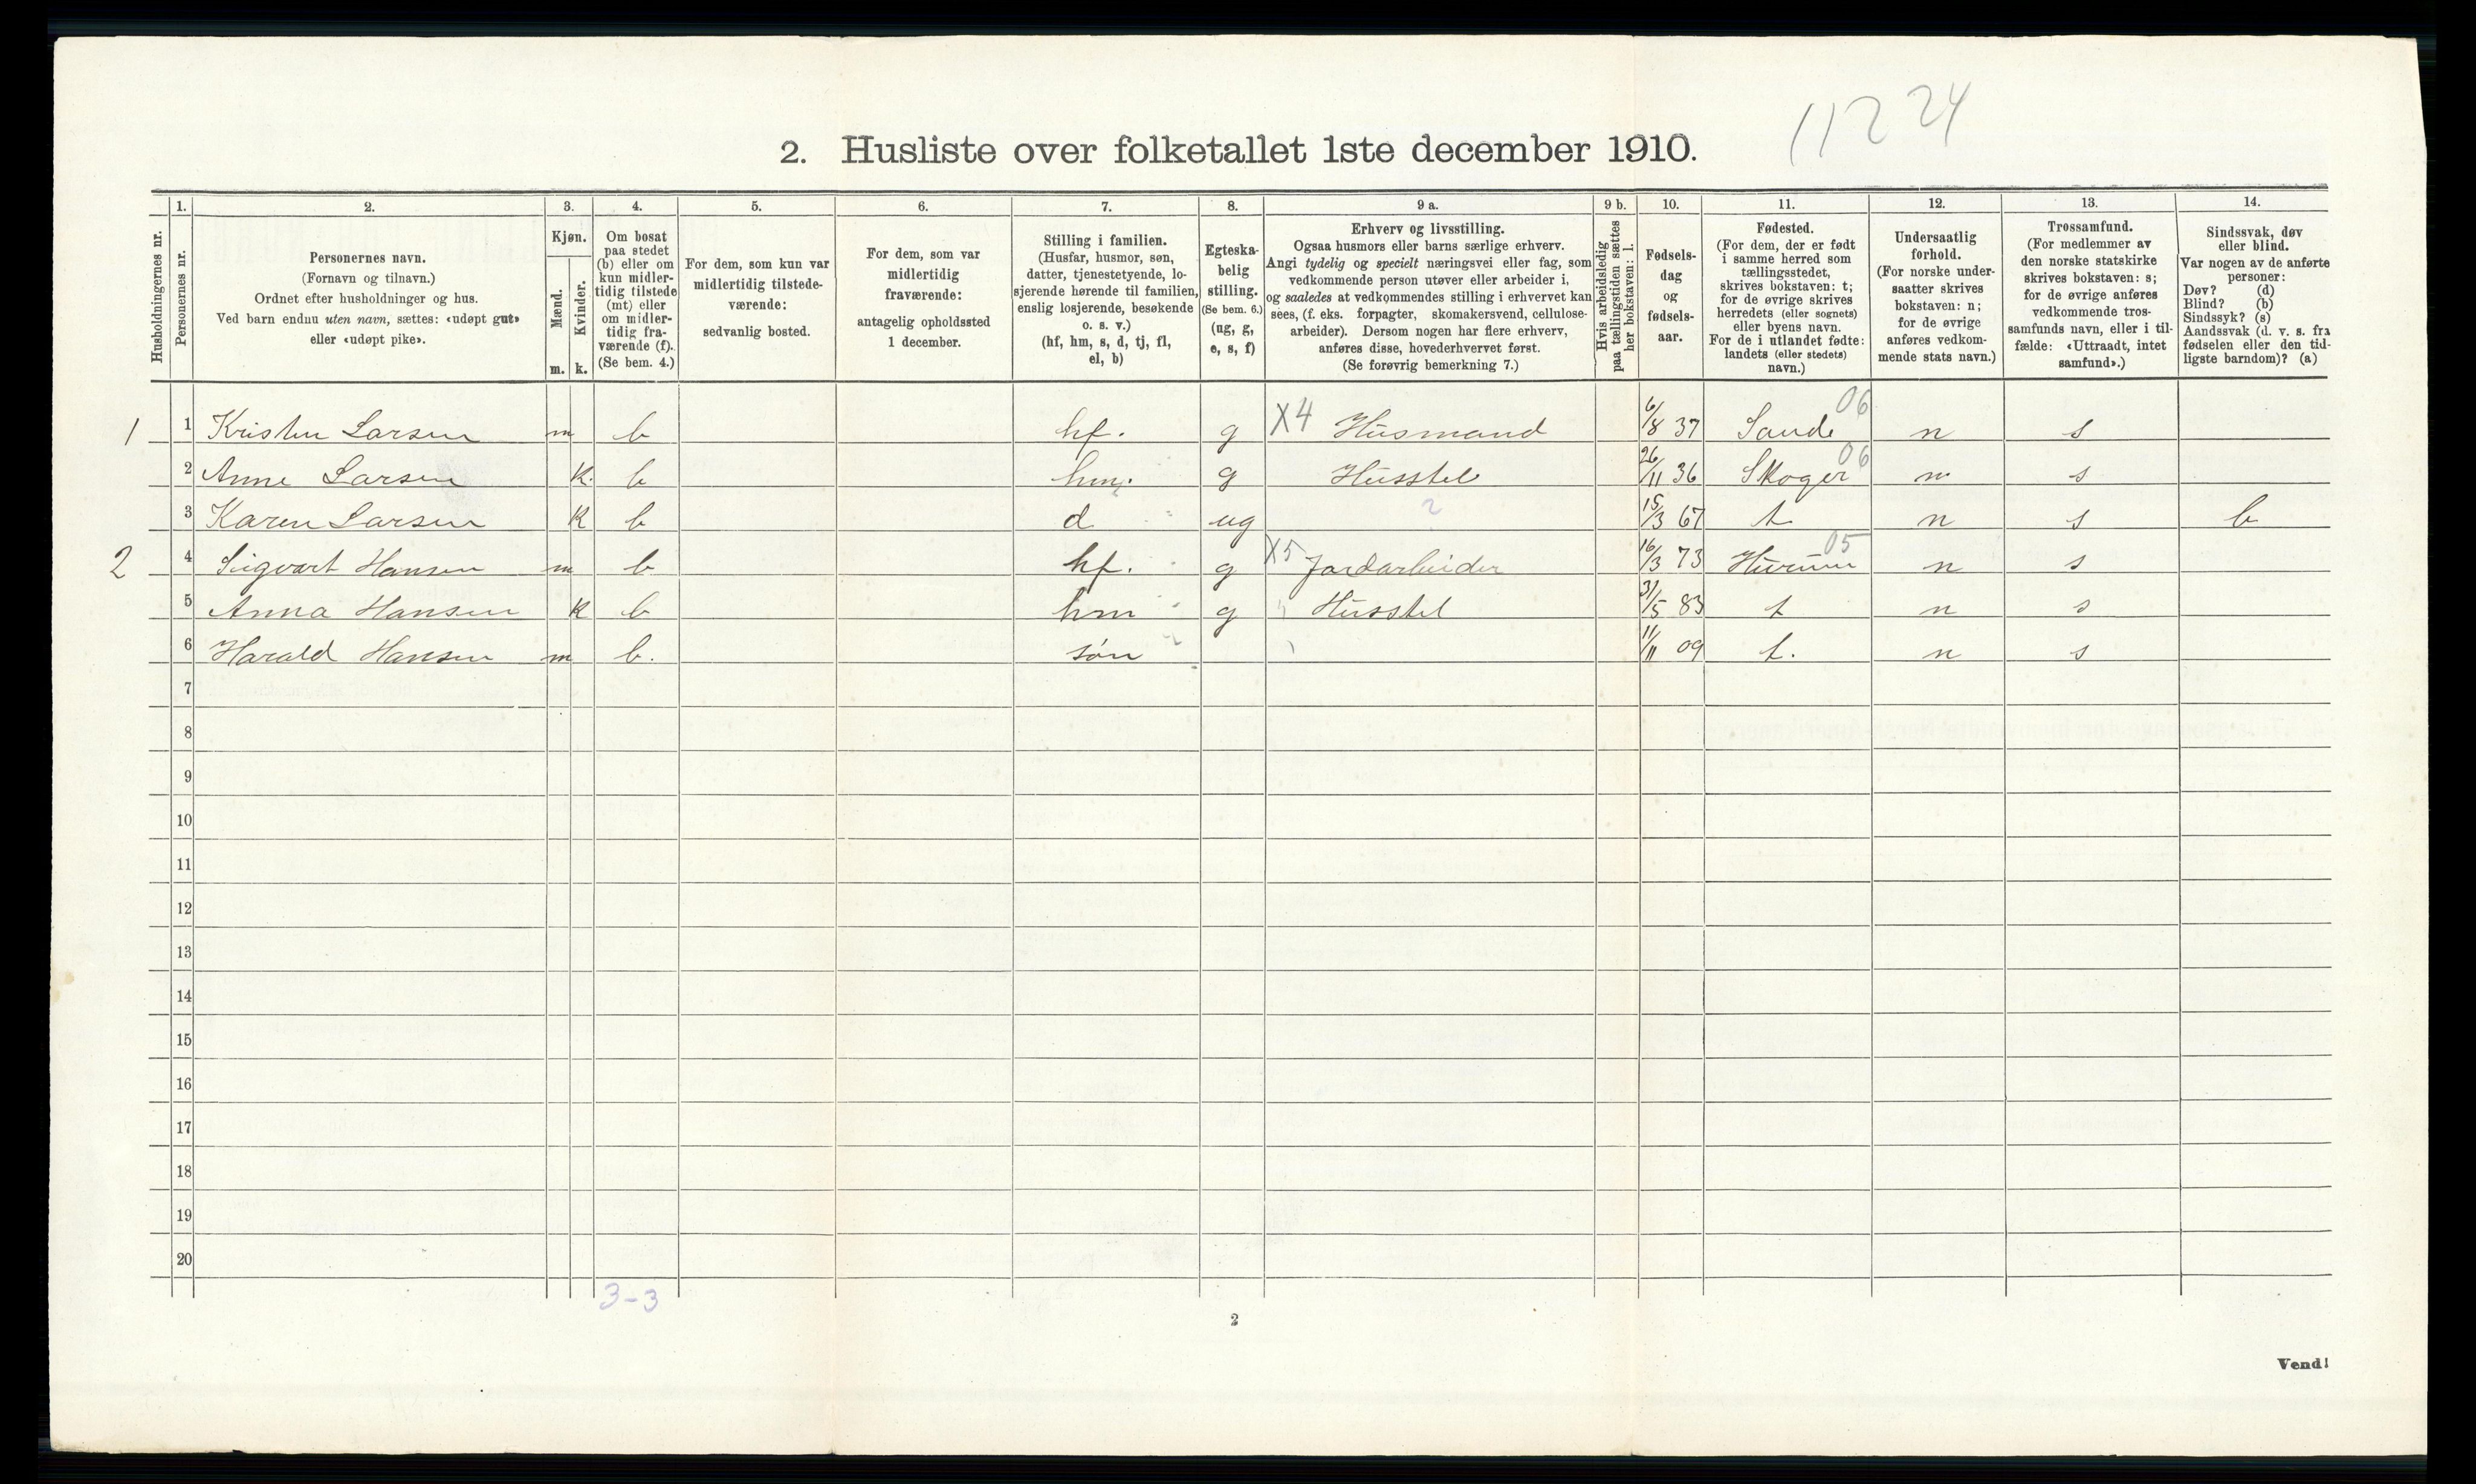 1124
2. Husliste over folketallet 1ste december 1910.
Husholdningernes nr.
1.
Personernes nr.
2.
Personernes navn.
(Fornavn og tilnavn.)
Ordnet efter husholdninger og hus.
Ved barn endnu uten navn, sættes: «udøpt gut»
eller «udøpt pike».
3.
Kjøn.
Mænd.
Kvinder.
m. k.
4.
Om bosat
paa stedet
(b) eller om
kun midler-
tidig tilstede
(mt) eller
om midler-
tidig fra-
værende (f).
(Se bem. 4.)
5.
For dem, som kun var
midlertidig tilstede-
værende:
sedvanlig bosted.
6.
For dem, som var
midlertidig
fraværende:
antagelig opholdssted
1 december.
7.
Stilling i familien.
(Husfar, husmor, søn,
datter, tjenestetyende, lo-
sjerende hørende til familien,
enslig losjerende, besøkende
o. s. v.)
(hf, hm, s, d, tj, fl,
el, b)
8.
Egteska-
belig
stilling.
(Se bem. 6.)
(ug, g,
e, s, f)
9 a.
Erhverv og livsstilling.
Ogsaa husmors eller barns særlige erhverv.
Angi tydelig og specielt næringsvei eller fag, som
vedkommende person utøver eller arbeider i,
og saaledes at vedkommendes stilling i erhvervet kan
sees, (f. eks. forpagter, skomakersvend, cellulose-
arbeider). Dersom nogen har flere erhverv,
anføres disse, hovederhvervet først.
(Se forøvrig bemerkning 7.)
9 b.
Hvis arbeidsledig
paa tællingstiden sættes
her bokstaven: l.
10.
Fødsels-
dag
og
fødsels-
aar.
11.
Fødested.
(For dem, der er født
i samme herred som
tællingsstedet,
skrives bokstaven: t;
for de øvrige skrives
herredets (eller sognets)
eller byens navn.
For de i utlandet fødte:
landets (eller stedets)
navn.)
12.
Undersaatlig
forhold.
(For norske under-
saatter skrives
bokstaven: n;
for de øvrige
anføres vedkom-
mende stats navn.)
13.
Trossamfund.
(For medlemmer av
den norske statskirke
skrives bokstaven: s;
for de øvrige anføres
vedkommende tros-
samfunds navn, eller i til-
fælde: «Uttraadt, intet
samfund».)
14.
Sindssvak, døv
eller blind.
Var nogen av de anførte
personer:
Døv? (d)
Blind? (b)
Sindssyk? (s)
Aandssvak (d. v. s. fra
fødselen eller den tid-
ligste barndom)? (a)
1 1 Kristen Larsen m b hf. g X4 Husmand 6/8 37 Sande 06 n s
2 Anne Larsen k. b hm. g Husstel 26/11 36 Skoger 06 n s
3 Karen Larsen k b d ug 2 15/3 67 t n s b
2 4 Sigvart Hansen m b hf. g X5 Jordarbeider 16/3 73 Hurum 05 n s
5 Anna Hansen k b hm g Husstel 31/5 83 t n s
6 Harald Hansen m b. søn 11/11 09 t. n s
7
8
9
10
11
12
13
14
15
16
17
18
19
20
3-3
2
Vend!